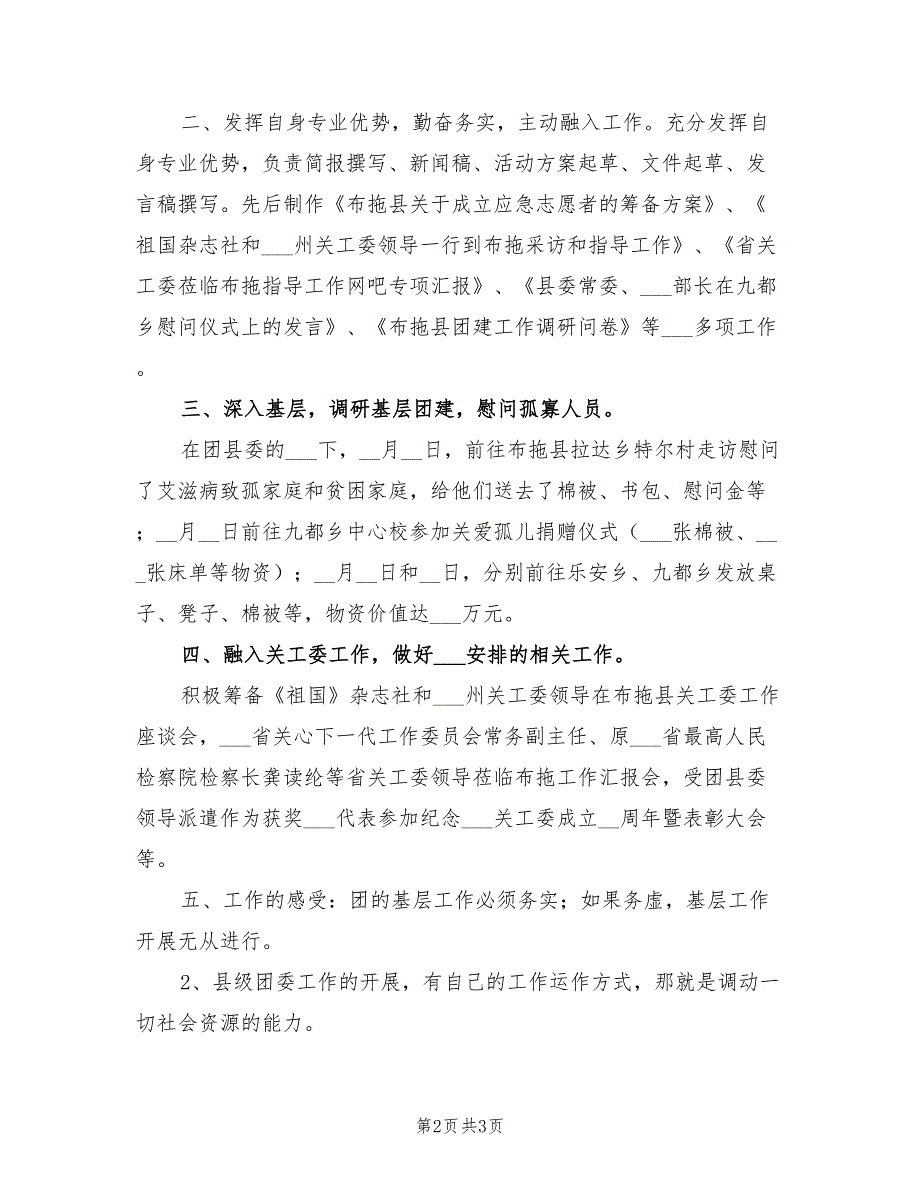 二、发挥自身专业优势，勤奋务实，主动融入工作。充分发挥自
身专业优势，负责简报撰写、新闻稿、活动方案起草、文件起草、发
言稿撰写。先后制作《布拖县关于成立应急志愿者的筹备方案》、《
祖国杂志社和___州关工委领导一行到布拖采访和指导工作》、《省关
工委莅临布拖指导工作网吧专项汇报》、《县委常委、___部长在九都
乡慰问仪式上的发言》、《布拖县团建工作调研问卷》等___多项工作
。
三、深入基层，调研基层团建，慰问孤寡人员。
在团县委的___下，__月__日，前往布拖县拉达乡特尔村走访慰问
了艾滋病致孤家庭和贫困家庭，给他们送去了棉被、书包、慰问金等
；__月__日前往九都乡中心校参加关爱孤儿捐赠仪式（___张棉被、__
_张床单等物资）；__月__日和__日，分别前往乐安乡、九都乡发放桌
子、凳子、棉被等，物资价值达___万元。
四、融入关工委工作，做好___安排的相关工作。
积极筹备《祖国》杂志社和___州关工委领导在布拖县关工委工作
座谈会，___省关心下一代工作委员会常务副主任、原___省最高人民
检察院检察长龚读纶等省关工委领导莅临布拖工作汇报会，受团县委
领导派遣作为获奖___代表参加纪念___关工委成立__周年暨表彰大会
等。
五、工作的感受：团的基层工作必须务实；如果务虚，基层工作
开展无从进行。
2、县级团委工作的开展，有自己的工作运作方式，那就是调动一
切社会资源的能力。
第2页共3页